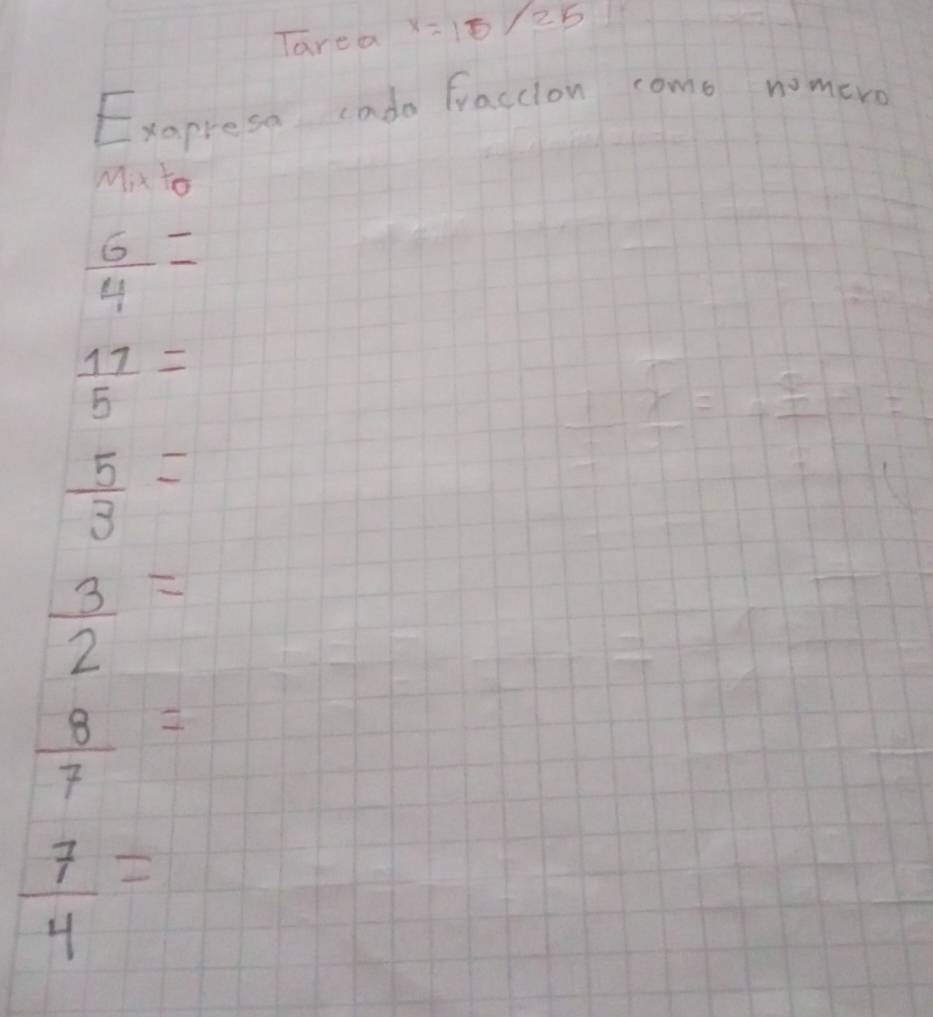 Tarea
Exapresa cada fraccion como nomero
Mixto
6/4 =
17/5 =
5/3 =
3/2 =
8/7 =
7/4 =